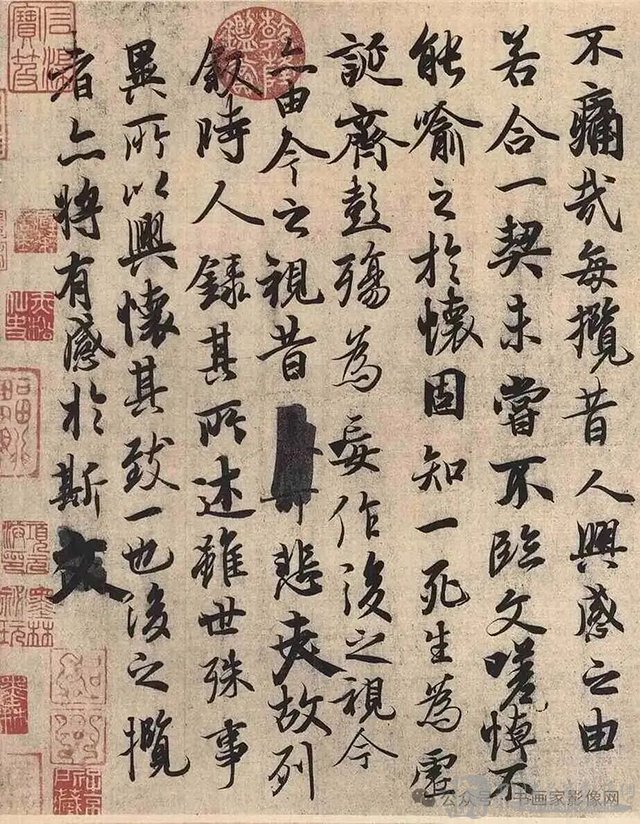 不痛哉每攬昔人興感之由
若合一契未嘗不臨文嗟悼不
能喻之於懷固知一死生為虛
誕齊彭殤為妄作後之視今
亦由今之視昔 悲夫故列
敘時人錄其所述雖世殊事
異所以興懷其致一也後之攬
者亦將有感於斯文
公众号 书画家影像网